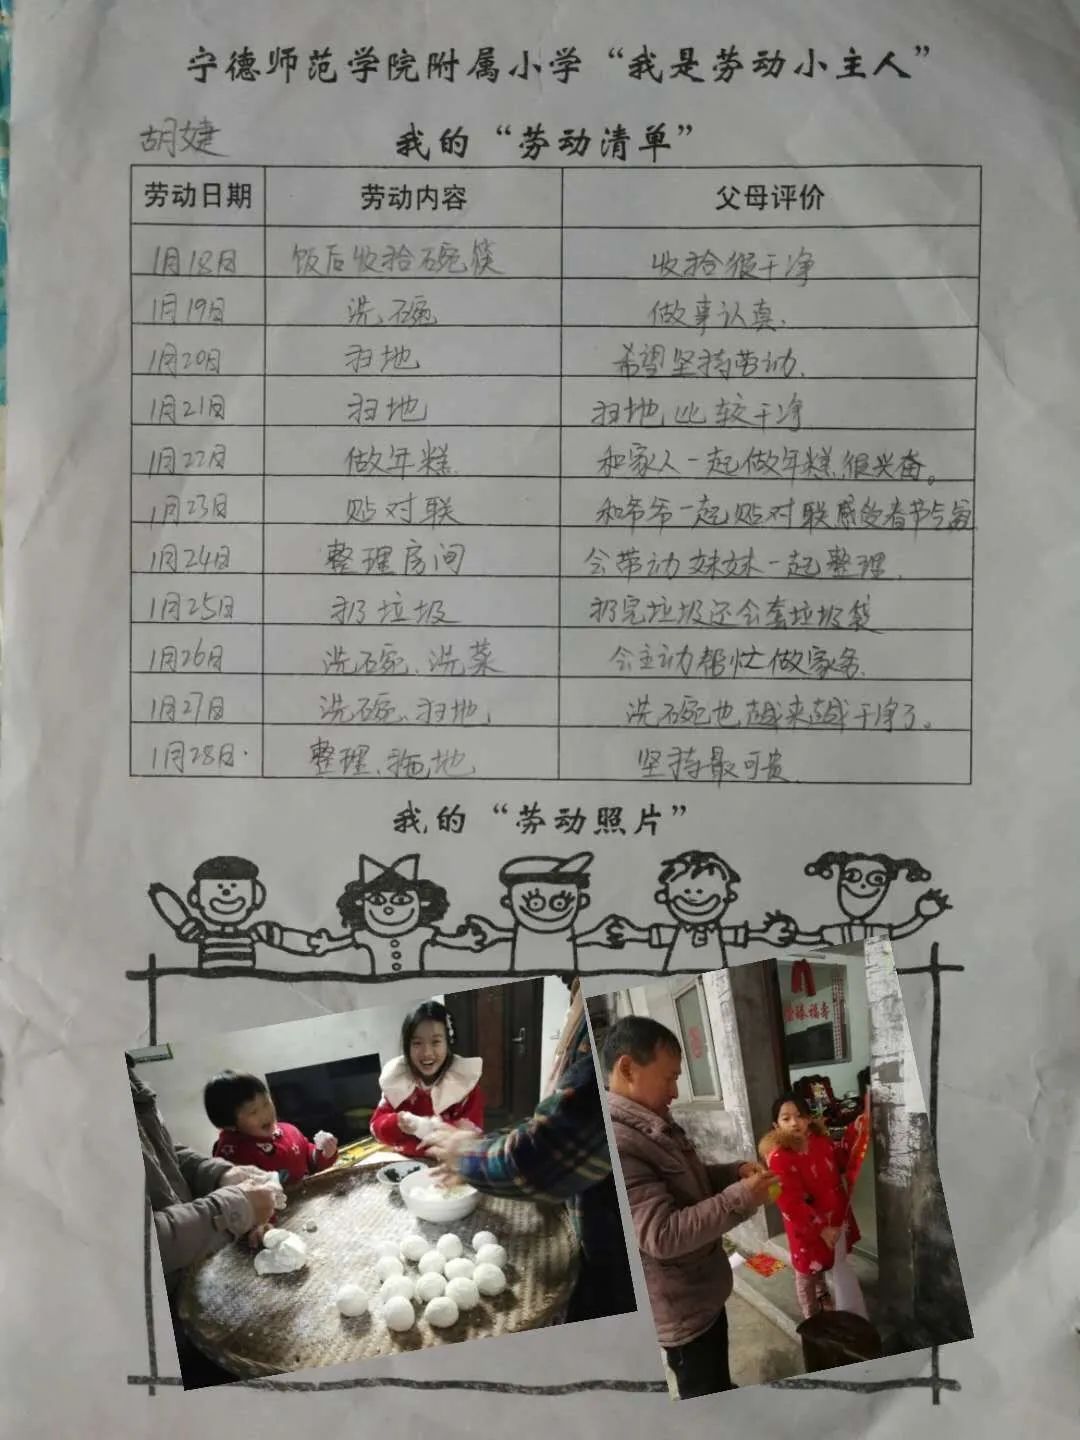 宁德师范学院附属小学“我是劳动小主人”
胡婕
我的“劳动清单”
劳动日期 劳动内容 父母评价
1月18日 饭后收拾碗筷 收拾很干净
1月19日 洗碗 做事认真.
1月20日 扫地 希望坚持劳动.
1月21日 扫地 扫地比较干净
1月22日 做年糕. 和家人一起做年糕很兴奋。
1月23日 贴对联 和爷爷一起贴对联感受春节气氛
1月24日 整理房间 会带动妹妹一起整理.
1月25日 扔垃圾 扔完垃圾还会套垃圾袋
1月26日 洗碗、洗菜 会主动帮忙做家务.
1月27日 洗碗、扫地, 洗碗也越来越干净了。
1月28日. 整理、拖地 坚持最可贵.
我的“劳动照片”